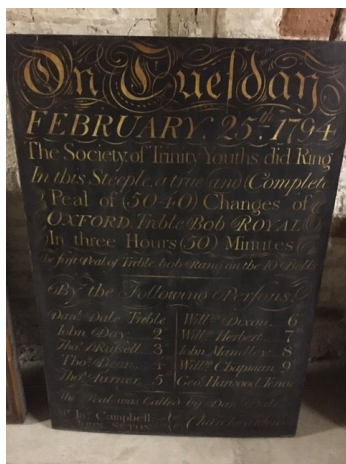 On Tuesday
FEBRUARY, 25th, 1794
The Society of Trinity Youths did Ring
In this Steeple, a true and Complete
Peal of (5040) Changes of
OXFORD, Treble Bob ROYAL
In three Hours (50) Minutes
the first Peal of Treble bob Rang on the 10 Bells
By the Following Persons
Danl. Dale Treble
John Day 2
Thos. 3
Thos. 4
Thos. Turner 5
Willm. Dixon 6
Willm. Herbert 7th
John Mandley 8
Willm. Chapman 9
Geo. Harwood Tenor
the Peal was Called by Danl. Dale
Campbell
Churchwardens